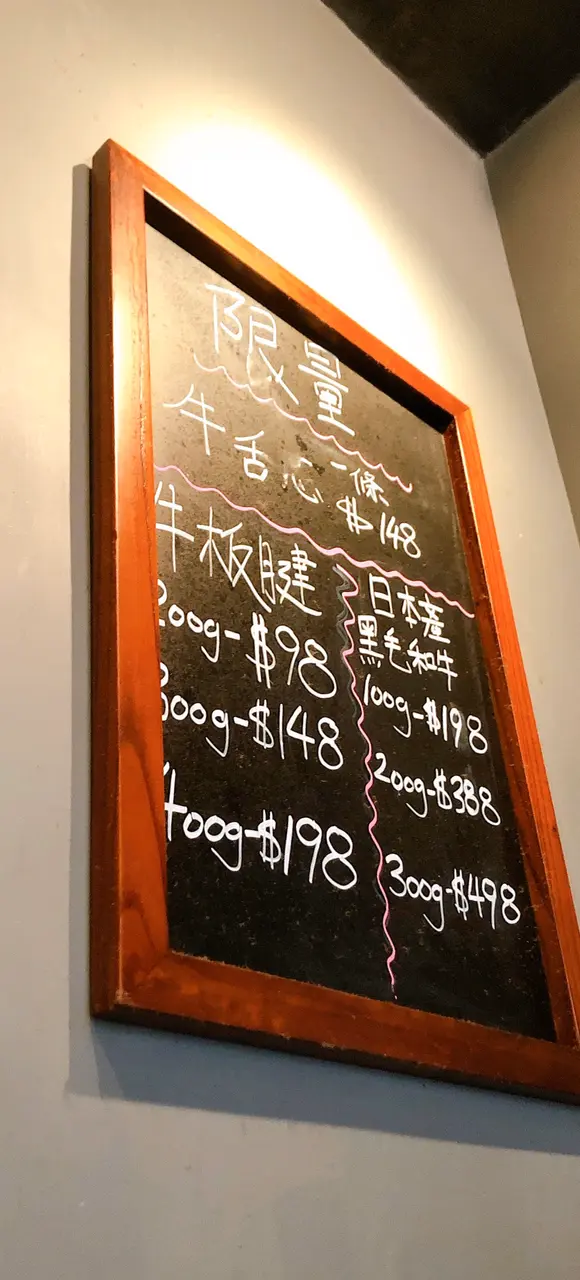 限量
牛舌心一條
$148
牛板腱
200g-$98
300g-$148
400g-$198
日本產
黑毛和牛
100g-$198
200g-$388
300g-$498